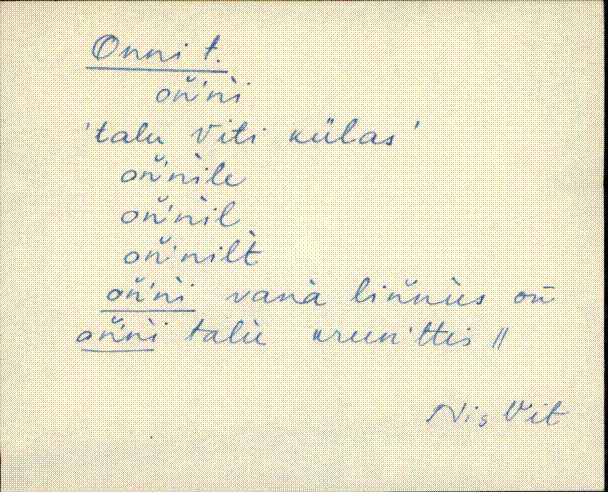 Onni t.
oň'ni̬
'talu Viti külas'
oň'nile
oň'nil
oň'nilt
oň'ni̬ vanà liňnùs oň
oň'ni talù krun'ttis ||
Nis Vit